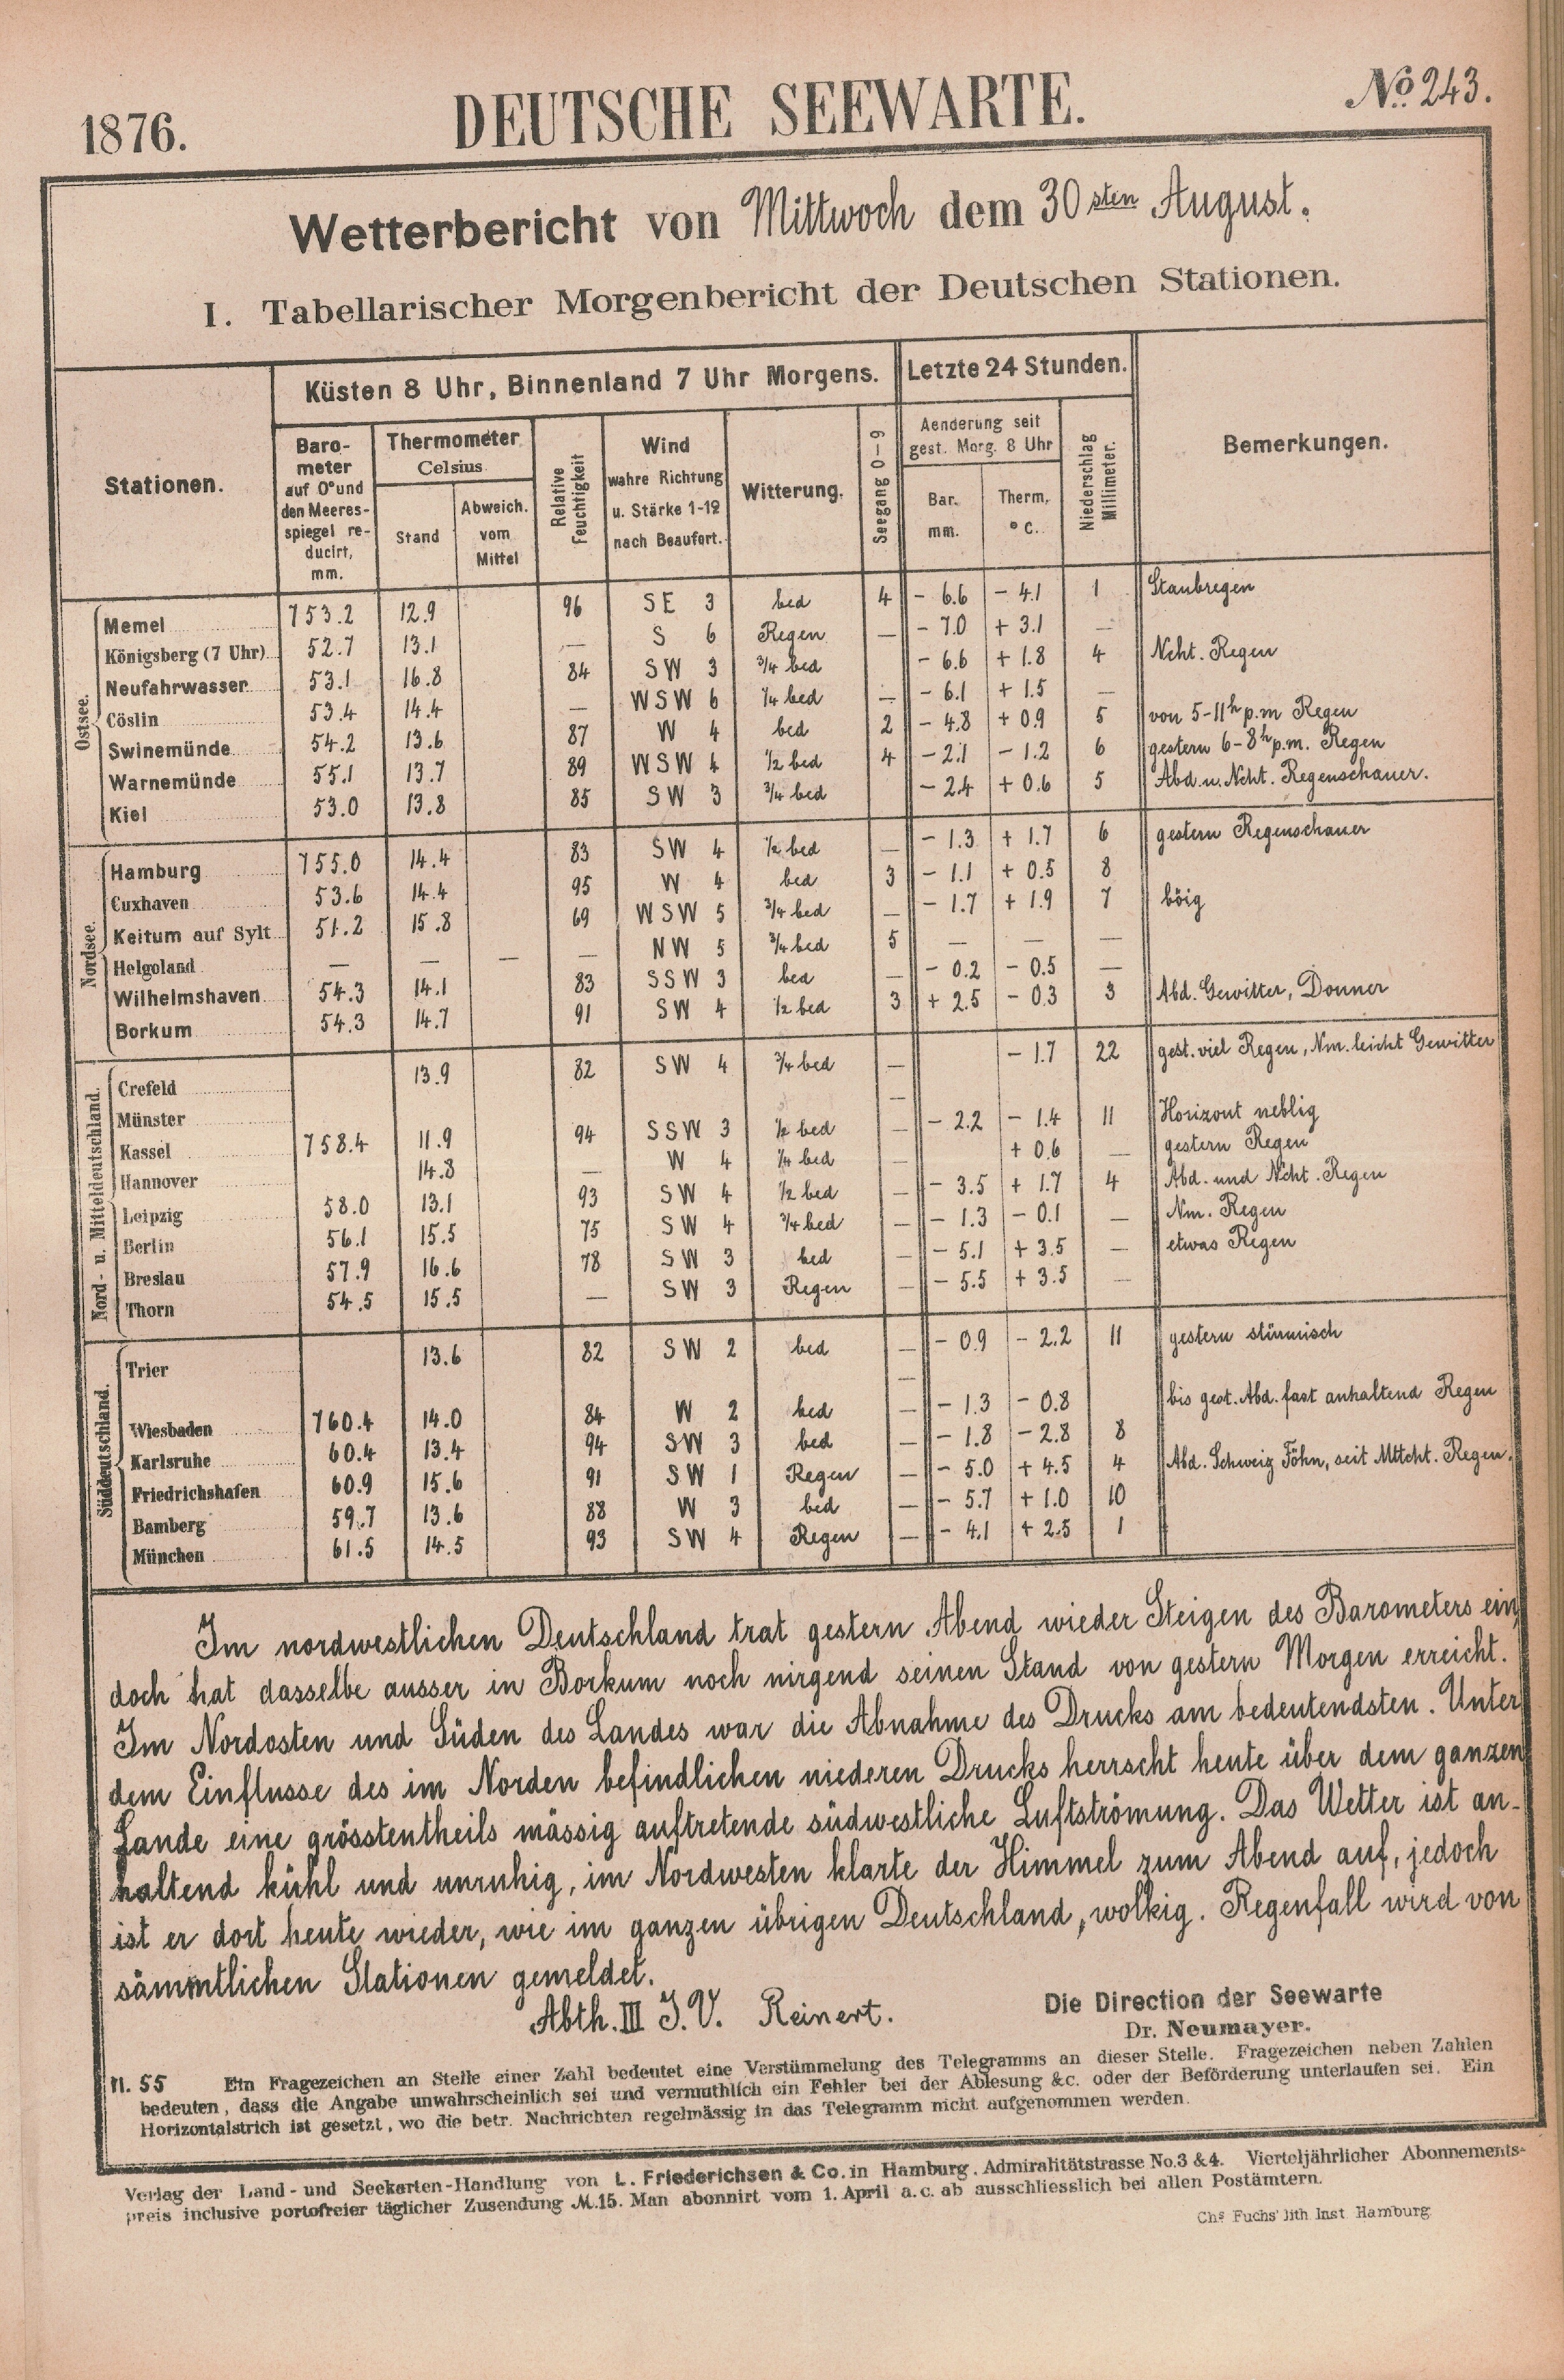 1876.
DEUTSCHE SEEWARTE.
No. 243.
Wetterbericht von Mittwoch dem 30sten August.
I. Tabellarischer Morgenbericht der Deutschen Stationen.
Küsten 8 Uhr, Binnenland 7 Uhr Morgens. Letzte 24 Stunden.
Stationen.
Barometer auf 0° und den Meeresspiegel reducirt, mm.
Thermometer Celsius
Stand
Abweich. vom Mittel
Relative Feuchtigkeit
Wind wahre Richtung u. Stärke 1-12 nach Beaufort.
Witterung.
Seegang 0-9
Aenderung seit gest. Morg. 8 Uhr
Bar. mm.
Therm. ° C.
Niederschlag Millimeter.
Bemerkungen.
Ostsee.
Memel 753.2 12.9 96 SE 3 bed 4 - 6.6 - 4.1 1 Staubregen
Königsberg (7 Uhr) 52.7 13.1 — S 6 Regen — - 7.0 + 3.1 —
Neufahrwasser 53.1 16.8 84 SW 3 3/4 bed - 6.6 + 1.8 4 Ncht. Regen
Cöslin 53.4 14.4 — WSW 6 1/4 bed — - 6.1 + 1.5 —
Swinemünde 54.2 13.6 87 W 4 bed 2 - 4.8 + 0.9 5 von 5-11h p.m Regen
Warnemünde 55.1 13.7 89 WSW 4 1/2 bed 4 - 2.1 - 1.2 6 gestern 6-8h p.m. Regen
Kiel 53.0 13.8 85 SW 3 3/4 bed - 2.4 + 0.6 5 Abd. u. Ncht. Regenschauer.
Nordsee.
Hamburg 755.0 14.4 83 SW 4 1/2 bed — - 1.3 + 1.7 6 gestern Regenschauer
Cuxhaven 53.6 14.4 95 W 4 bed 3 - 1.1 + 0.5 8
Keitum auf Sylt 51.2 15.8 69 WSW 5 3/4 bed — - 1.7 + 1.9 7 böig
Helgoland — — — — NW 5 3/4 bed 5 — — —
Wilhelmshaven 54.3 14.1 83 SSW 3 bed — - 0.2 - 0.5 —
Borkum 54.3 14.7 91 SW 4 1/2 bed 3 + 2.5 - 0.3 3 Abd. Gewitter, Donner
Nord- u. Mitteldeutschland.
Crefeld 13.9 82 SW 4 3/4 bed — - 1.7 22 gest. viel Regen, Nm. leicht Gewitter
Münster —
Kassel 758.4 11.9 94 SSW 3 1/2 bed — - 2.2 - 1.4 11 Horizont neblig
Hannover 14.8 — W 4 1/4 bed — + 0.6 — gestern Regen
Leipzig 58.0 13.1 93 SW 4 1/2 bed — - 3.5 + 1.7 4 Abd. und Ncht. Regen
Berlin 56.1 15.5 75 SW 4 3/4 bed — - 1.3 - 0.1 — Nm. Regen
Breslau 57.9 16.6 78 SW 3 bed — - 5.1 + 3.5 — etwas Regen
Thorn 54.5 15.5 — SW 3 Regen — - 5.5 + 3.5 —
Süddeutschland.
Trier 13.6 82 SW 2 bed — - 0.9 - 2.2 11 gestern stürmisch
—
Wiesbaden 760.4 14.0 84 W 2 bed — - 1.3 - 0.8 bis gest. Abd. fast anhaltend Regen
Karlsruhe 60.4 13.4 94 SW 3 bed — - 1.8 - 2.8 8
Friedrichshafen 60.9 15.6 91 SW 1 Regen — - 5.0 + 4.5 4 Abd. Schweiz Föhn, seit Mttcht. Regen.
Bamberg 59.7 13.6 88 W 3 bed — - 5.7 + 1.0 10
München 61.5 14.5 93 SW 4 Regen — - 4.1 + 2.5 1
Im nordwestlichen Deutschland trat gestern Abend wieder Steigen des Barometers ein,
doch hat dasselbe ausser in Borkum noch nirgend seinen Stand von gestern Morgen erreicht.
Im Nordosten und Süden des Landes war die Abnahme des Drucks am bedeutendsten. Unter
dem Einflusse des im Norden befindlichen niederen Drucks herrscht heute über dem ganzen
Lande eine grösstentheils mässig auftretende südwestliche Luftströmung. Das Wetter ist an-
haltend kühl und unruhig, im Nordwesten klarte der Himmel zum Abend auf, jedoch
ist er dort heute wieder, wie im ganzen übrigen Deutschland, wolkig. Regenfall wird von
sämmtlichen Stationen gemeldet.
Abth. III J.V. Reinert.
Die Direction der Seewarte
Dr. Neumayer.
N. 55 Ein Fragezeichen an Stelle einer Zahl bedeutet eine Verstümmelung des Telegramms an dieser Stelle. Fragezeichen neben Zahlen
bedeuten, dass die Angabe unwahrscheinlich sei und vermuthlich ein Fehler bei der Ablesung &c. oder der Beförderung unterlaufen sei. Ein
Horizontalstrich ist gesetzt, wo die betr. Nachrichten regelmässig in das Telegramm nicht aufgenommen werden.
Verlag der Land- und Seekarten-Handlung von L. Friederichsen & Co. in Hamburg. Admiralitätstrasse No. 3 & 4. Vierteljährlicher Abonnements-
preis inclusive portofreier täglicher Zusendung M. 15. Man abonnirt vom 1. April a. c. ab ausschliesslich bei allen Postämtern.
Chs Fuchs' lith. Inst. Hamburg